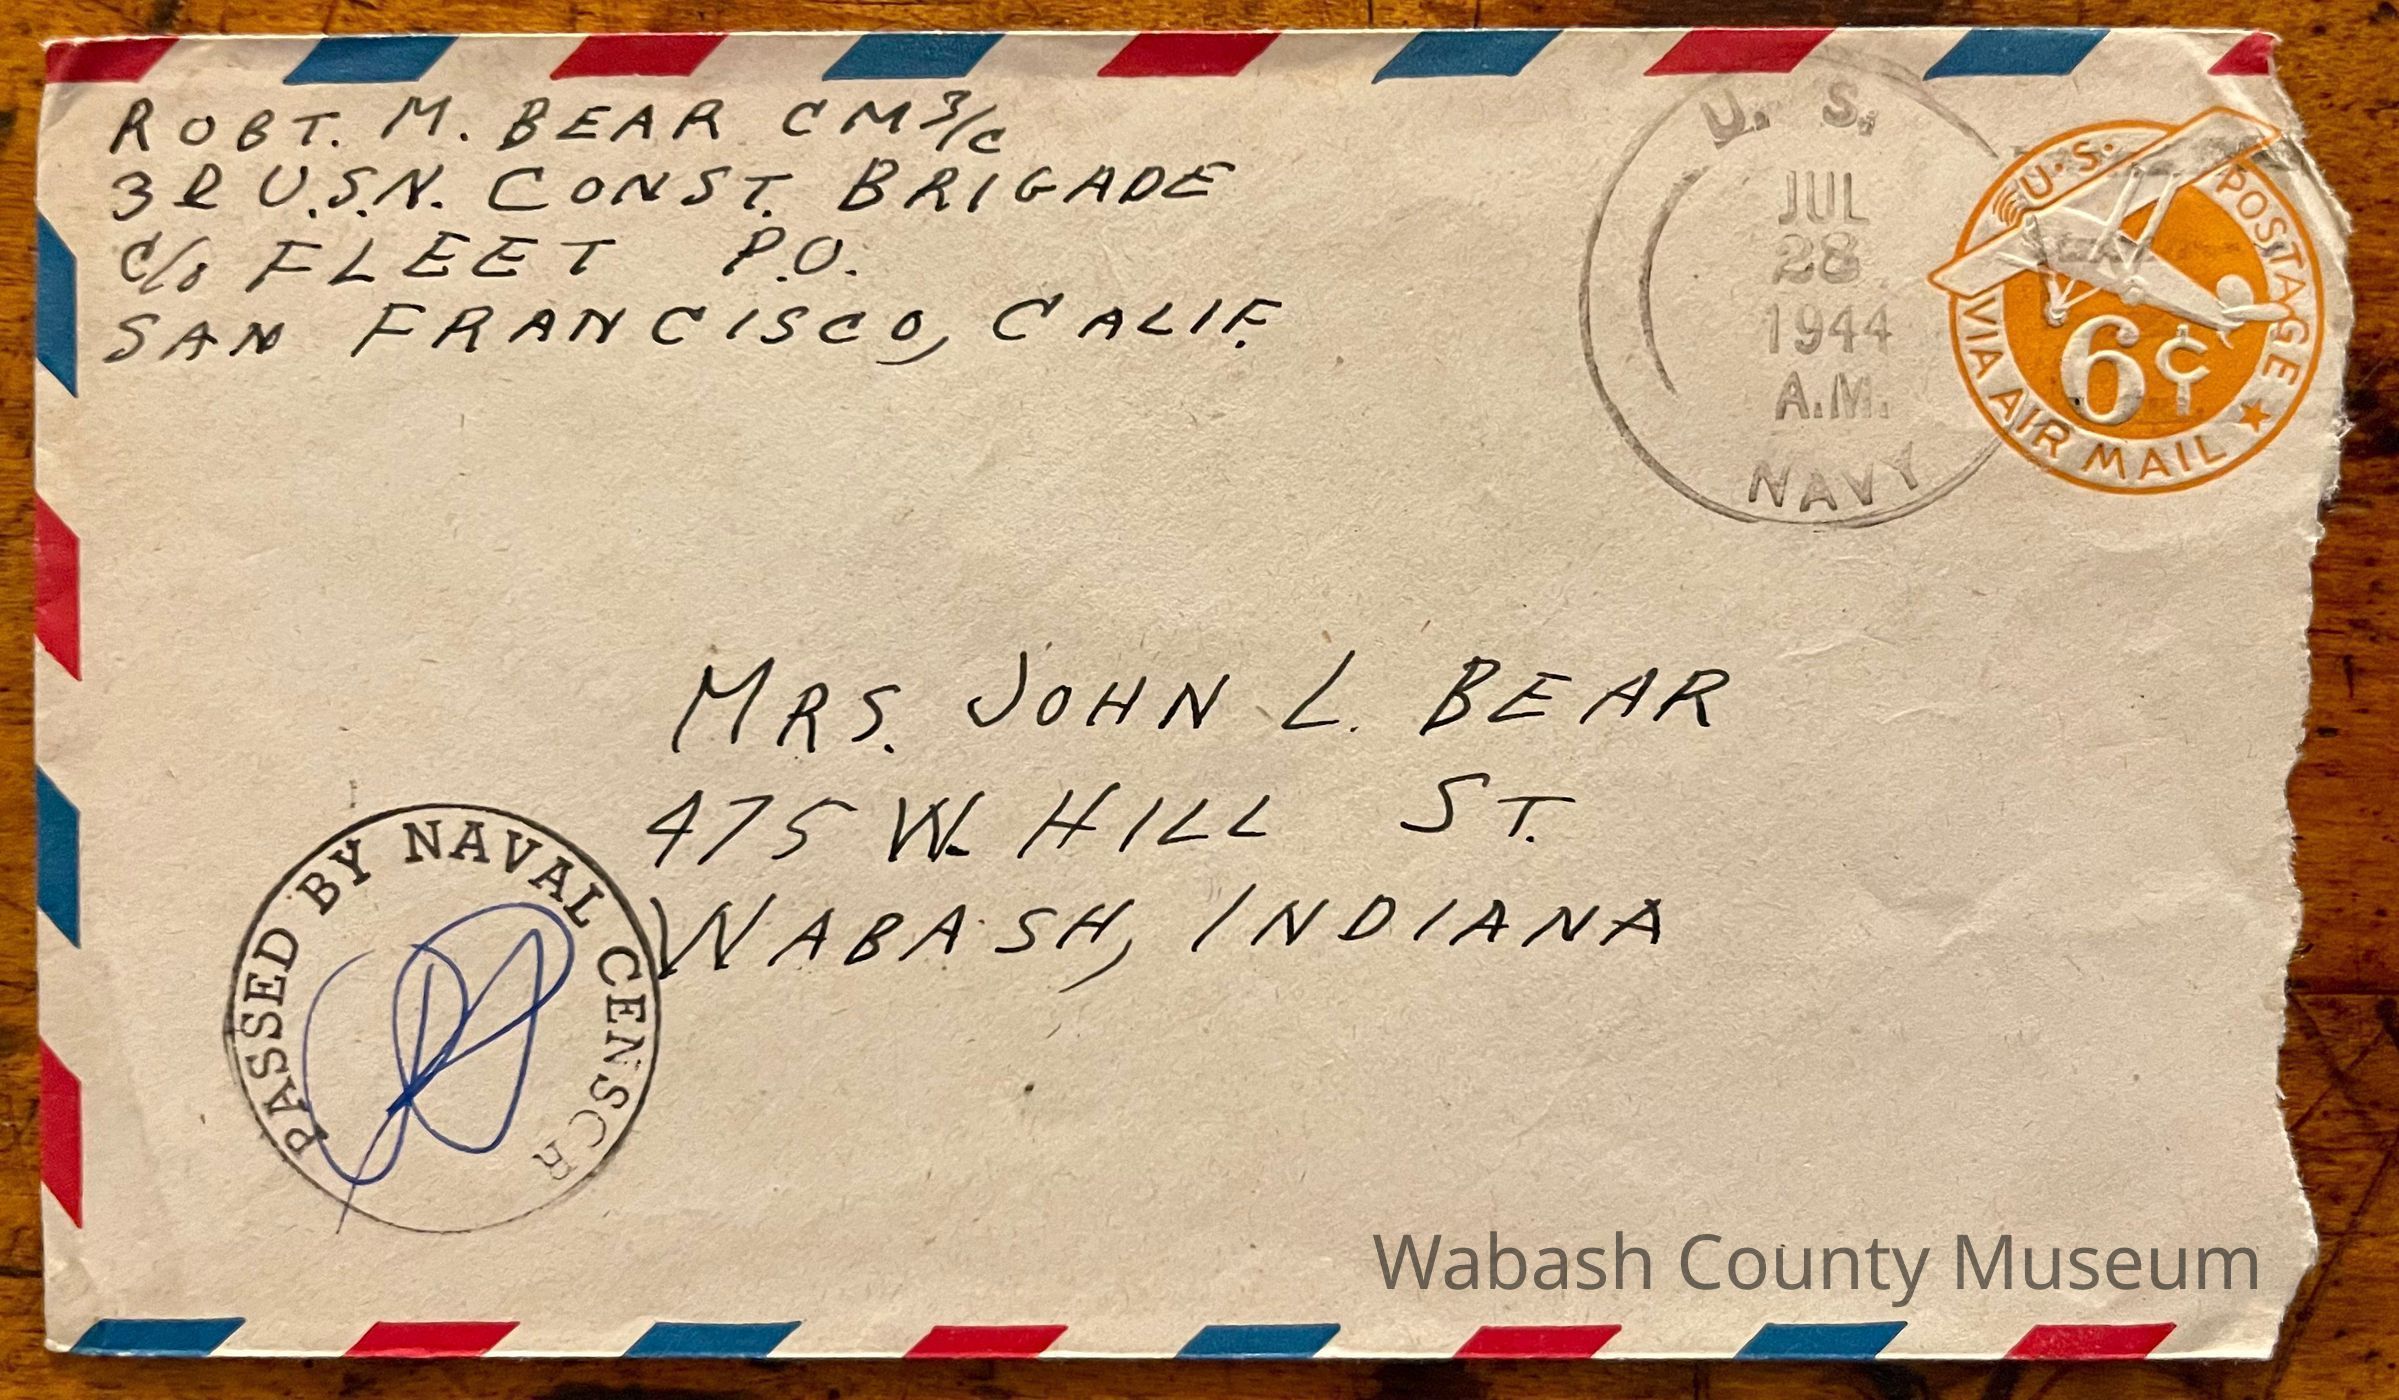 ROBT. M. BEAR CM 3/c
3d U.S.N. CONST. BRIGADE
c/o FLEET P.O.
SAN FRANCISCO, CALIF.
U. S.
JUL
28
1944
A.M.
NAVY
U.S. POSTAGE
VIA AIR MAIL
6¢
MRS. JOHN L. BEAR
475 W. HILL ST.
WABASH, INDIANA
PASSED BY NAVAL CENSOR
Wabash County Museum